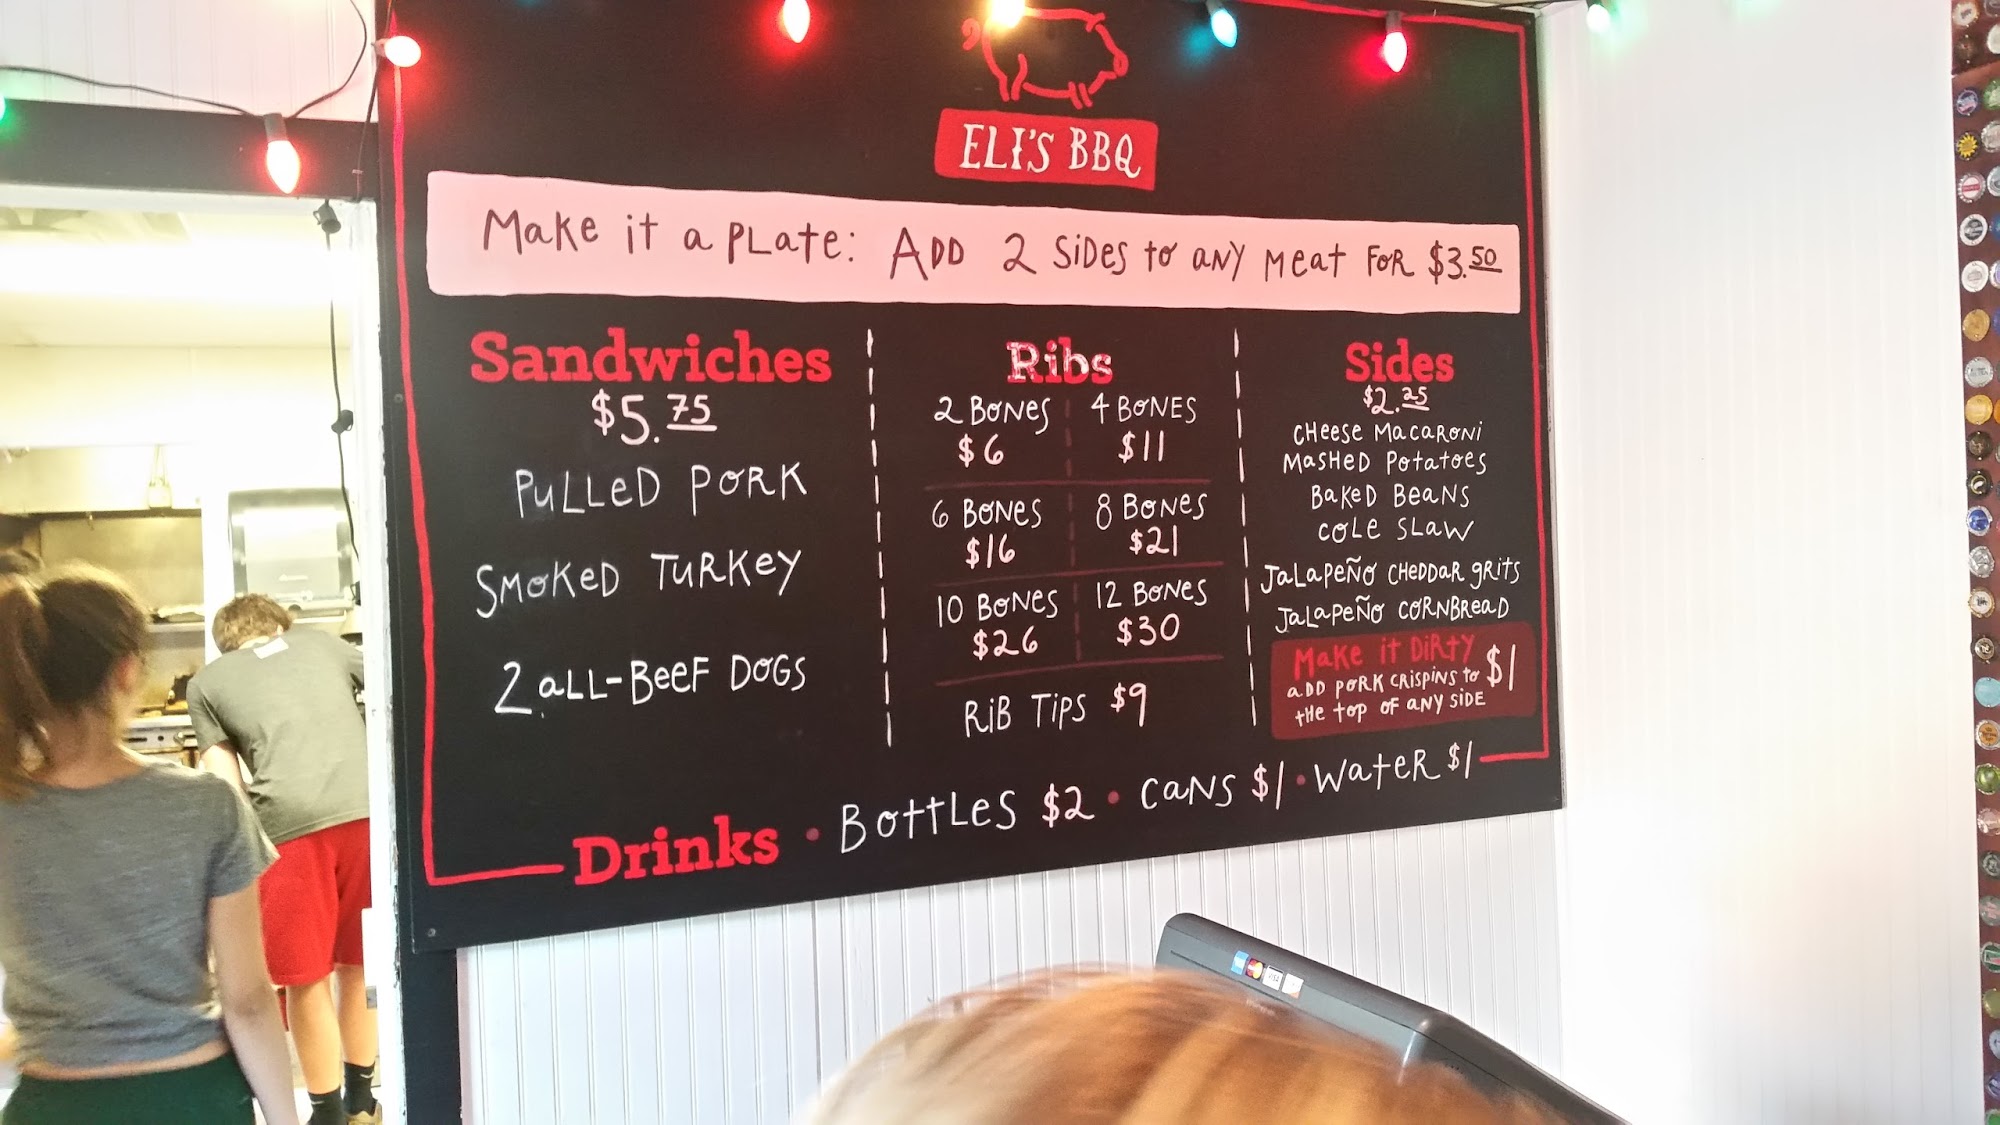 ELI'S BBQ
Make it a PLate: ADD 2 SiDes to aNY Meat FoR $3.50
Sandwiches
$5.75
PuLLeD PoRK
SMoKeD TuRKey
2 aLL-BeeF DoGS
Ribs
2 BoNes
$6
4 BoNES
$11
6 BoNes
$16
8 BoNes
$21
10 BoNes
$26
12 BoNes
$30
RiB TiPs $9
Sides
$2.25
CHeese MacaRoNi
MasHeD PotatoeS
BaKeD BeaNS
CoLe SLaW
JaLaPeÑo CHeDDaR gRitS
JaLaPeÑo CoRNBReaD
Make it DiRty
aDD PoRK CRisPiNs to
tHe toP oF aNy SiDE
$1
Drinks • BottLeS $2 • CaNS $1 • WateR $1